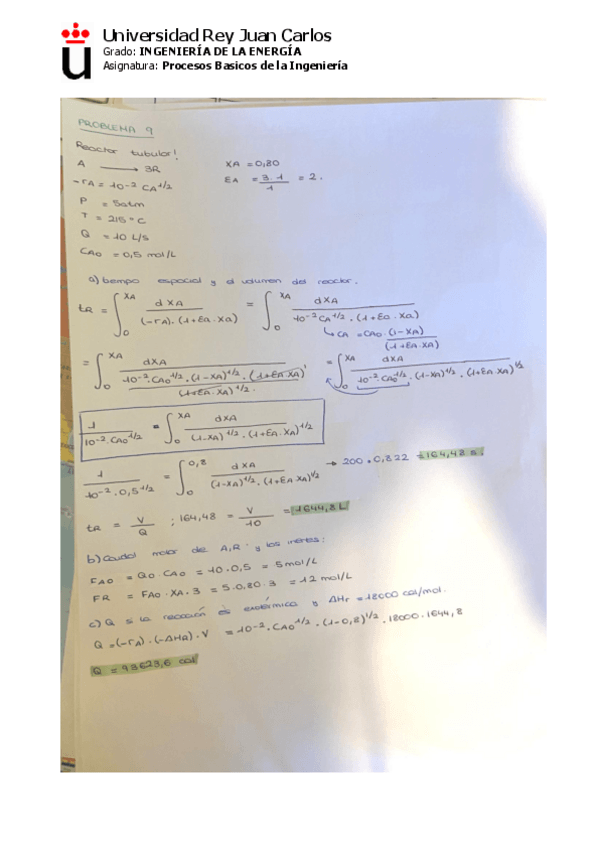 Universidad Rey Juan Carlos
Grado: INGENIERÍA DE LA ENERGÍA
Asignatura: Procesos Basicos de la Ingeniería
PROBLEMA 9
Reactor tubular!
A → 3R XA = 0,80
-rA = 10^-2 CA^1/2 EA = (3-1)/1 = 2.
P = 5atm
T = 215ºC
Q = 10 L/s
CAO = 0,5 mol/L
a) tiempo espacial y el volumen del reactor.
tR = ∫0^XA dXA/((-rA).(1+EA.XA)) = ∫0^XA dXA/(10^-2 CA^1/2.(1+EA.XA))
↳ CA = CAO.(1-XA)/(1+EA.XA)
= ∫0^XA dXA/(10^-2.CAO^1/2.(1-XA)^1/2.(1+EA.XA)^1/(1+EA.XA)^1/2) = ∫0^XA dXA/(10^-2.CAO^1/2.(1-XA)^1/2.(1+EA.XA)^1/2)
1/(10^-2.CAO^1/2) = ∫0^XA dXA/((1-XA)^1/2.(1+EA.XA)^1/2)
1/(10^-2.0,5^1/2) = ∫0^0,8 dXA/((1-XA)^1/2.(1+EA XA)^1/2) → 200.0,822 = 164,48 s.
tR = V/Q ; 164,48 = V/10 = 1644,8 L
b) Caudal molar de A, R y los inertes:
FAO = QO.CAO = 10.0,5 = 5mol/L
FR = FAO.XA.3 = 5.0,80.3 = 12 mol/L
c) Q si la reacción es exotérmica y ΔHr = 18000 cal/mol.
Q = (-rA).(-ΔHR).V = 10^-2.CAO^1/2.(1-0,8)^1/2.18000.1644,8
Q = 93623,6 cal